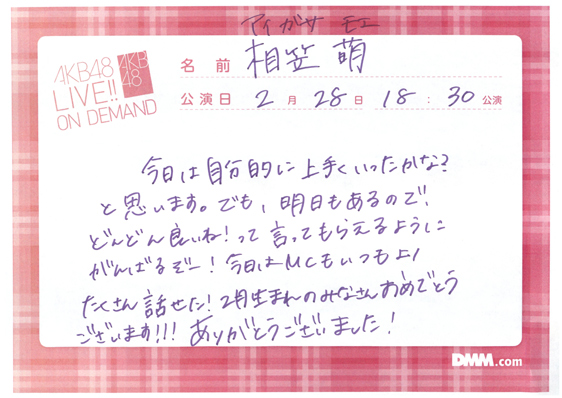 アイガサ モエ
AKB48
LIVE!!
ON DEMAND
AKB
48
名前 相笠 萌
公演日 2月28日 18:30公演
今日は自分的に上手くいったかな?
と思います。でも、明日もあるので、
どんどん良いね!って言ってもらえるように
がんばるぞー!今日はMCもいつもより
たくさん話せた!2月生まれのみなさんおめでとう
ございます!!!ありがとうございました!
DMM.com